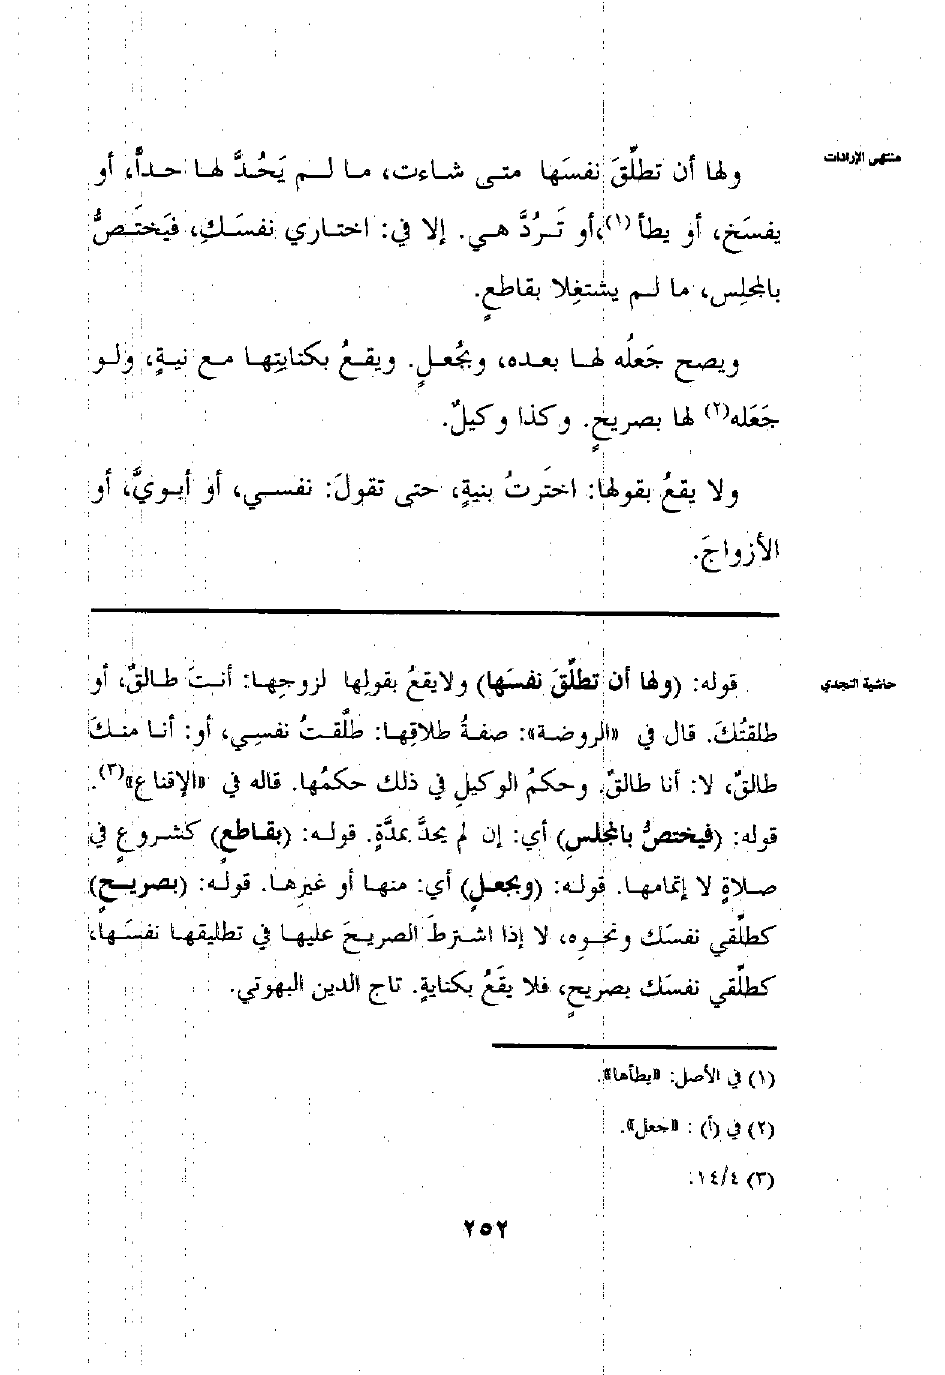 منتهى الإرادات
ولها أن تطلِّقَ نفسَها متى شاءت، ما لم يَحُدَّ لها حداً، أو
يفسَخ، أو يطأ(١)،أو تَرُدَّ هي. إلا في: اختاري نفسَكِ، فيَختَصُّ
بالمجلِس، ما لم يشتغِلا بقاطعٍ.
ويصح جَعلُه لها بعده، وبجُعلٍ. ويقعُ بكنايتِها مع نيةٍ، ولو
جَعَله(٢) لها بصريحٍ. وكذا وكيلٌ.
ولا يقعُ بقولها: اختَرتُ بنيةٍ، حتى تقولَ: نفسي، أو أبويَّ، أو
الأزواجَ.
حاشية النجدي
قوله: (ولها أن تطلِّقَ نفسَها) ولايقعُ بقولِها لزوجِها: أنتَ طالقٌ، أو
طلقتُكَ. قال في «الروضة»: صفةُ طلاقِها: طلَّقتُ نفسِي، أو: أنا منكَ
طالقٌ، لا: أنا طالقٌ. وحكمُ الوكيلِ في ذلك حكمُها. قاله في «الإقناع»(٣).
قوله: (فيختصُّ بالمجلسِ) أي: إن لم يحدَّ بمدَّةٍ. قوله: (بقاطعٍ) كشروعٍ في
صلاةٍ لا إتمامها. قوله: (وبجعلٍ) أي: منها أو غيرِها. قوله: (بصريحٍ)
كطلِّقي نفسَك ونحوِه، لا إذا اشترطَ الصريحَ عليها في تطليقها نفسَها،
كطلِّقي نفسَك بصريحٍ، فلا يقَعُ بكنايةٍ. تاج الدين البهوتي.
(١) في الأصل: «يطأها».
(٢) في (أ) : «جعل».
(٣) ١٤/٤.
٢٥٢